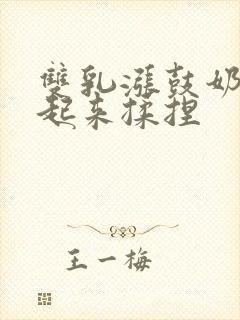 雙乳漲鼓奶
起來揉捏
王一梅